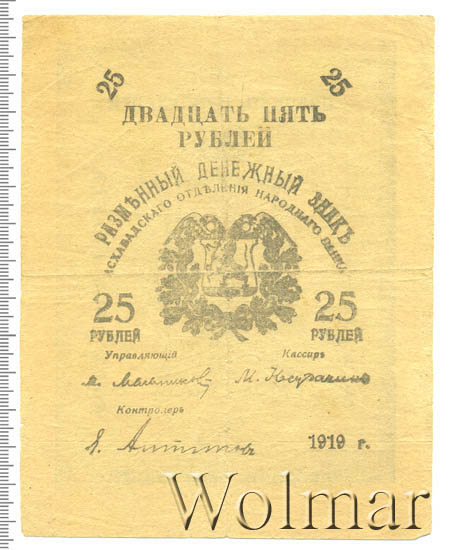 25 25
ДВАДЦАТЬ ПЯТЬ
РУБЛЕЙ
РАЗМѢННЫЙ ДЕНЕЖНЫЙ ЗНАКЪ
АСХАБАДСКАГО ОТДѢЛЕНІЯ НАРОДНАГО БАНКА
25 25
РУБЛЕЙ РУБЛЕЙ
Управляющій Кассиръ
М.
Контролеръ
1919 г.
Wolmar